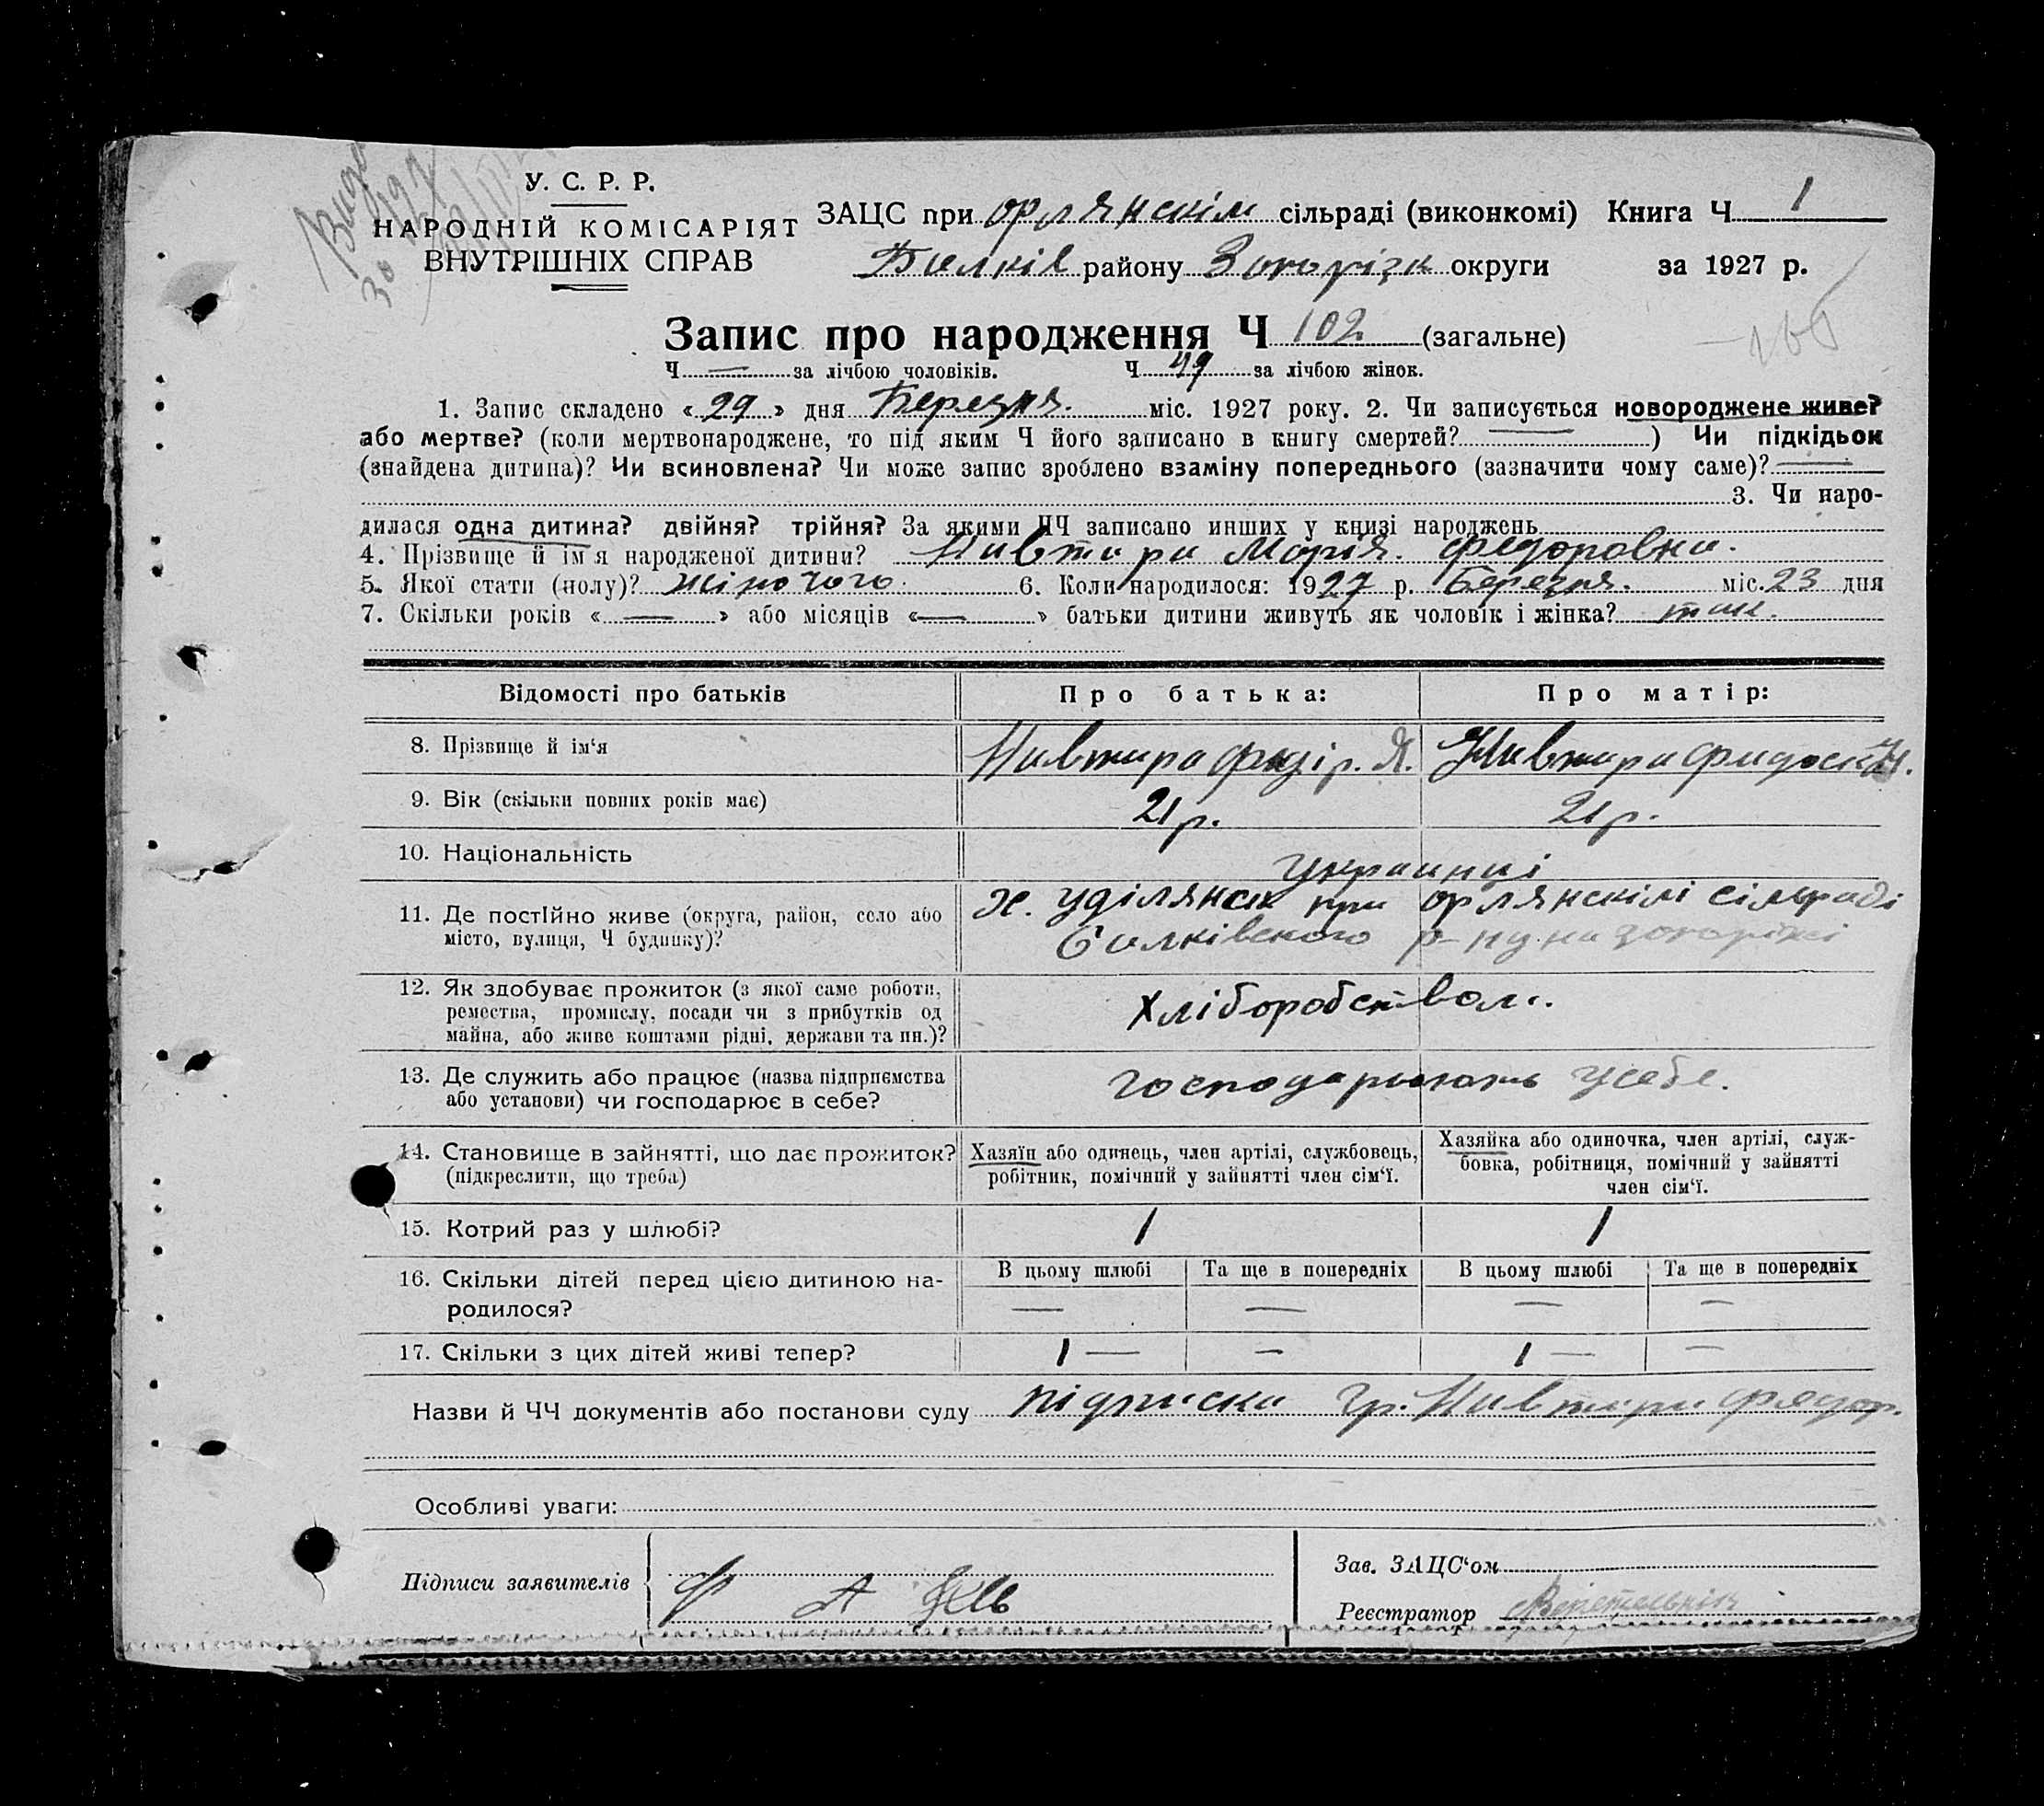 У. С. Р. Р.
НАРОДНІЙ КОМІСАРІЯТ
ВНУТРІШНІХ СПРАВ
ЗАЦС при орлянскім сільраді (виконкомі) Книга Ч 1
району округи за 1927 р.
Запис про народження Ч 102 (загальне)
Ч — за лічбою чоловіків. Ч 49 за лічбою жінок.
1. Запис складено « 29 » дня Березня. міс. 1927 року. 2. Чи записується новороджене живе?
або мертве? (коли мертвонароджене, то під яким Ч його записано в книгу смертей? — ) Чи підкідьок
(знайдена дитина)? Чи всиновлена? Чи може запис зроблено взаміну попереднього (зазначити чому саме)? —
3. Чи наро-
дилася одна дитина? двійня? трійня? За якими ЧЧ записано инших у книзі народжень
4. Прізвище й ім'я народженої дитини? Марія. Федоровна.
5. Якої стати (полу)? жіночого. 6. Коли народилося: 1927 р. Березня. міс. 23 дня
7. Скільки років « — » або місяців « — » батьки дитини живуть як чоловік і жінка?
Відомості про батьків Про батька: Про матір:
8. Прізвище й ім'я
9. Вік (скільки повних років має) 21 р. 21 р.
10. Національність украинці
11. Де постійно живе (округа, район, село або
місто, вулиця, Ч будинку)?
х. уділянск при орлянскімі сільраді
12. Як здобуває прожиток (з якої саме роботи,
ремества, промислу, посади чи з прибутків од
майна, або живе коштами рідні, держави та ин.)?
Хліборобством.
13. Де служить або працює (назва підприємства
або установи) чи господарює в себе?
господарюють усебе.
14. Становище в зайнятті, що дає прожиток?
(підкреслити, що треба)
Хазяїн або одинець, член артілі, службовець,
робітник, помічний у зайнятті член сім'ї.
Хазяйка або одиночка, член артілі, служ-
бовка, робітниця, помічний у зайнятті
член сім'ї.
15. Котрий раз у шлюбі? 1 1
16. Скільки дітей перед цією дитиною на-
родилося?
В цьому шлюбі Та ще в попередніх В цьому шлюбі Та ще в попередніх
— — — —
17. Скільки з цих дітей живі тепер? 1 — — 1 — —
Назви й ЧЧ документів або постанови суду підписка гр.
Особливі уваги:
Підписи заявителів
Зав. ЗАЦС'ом
Реєстратор